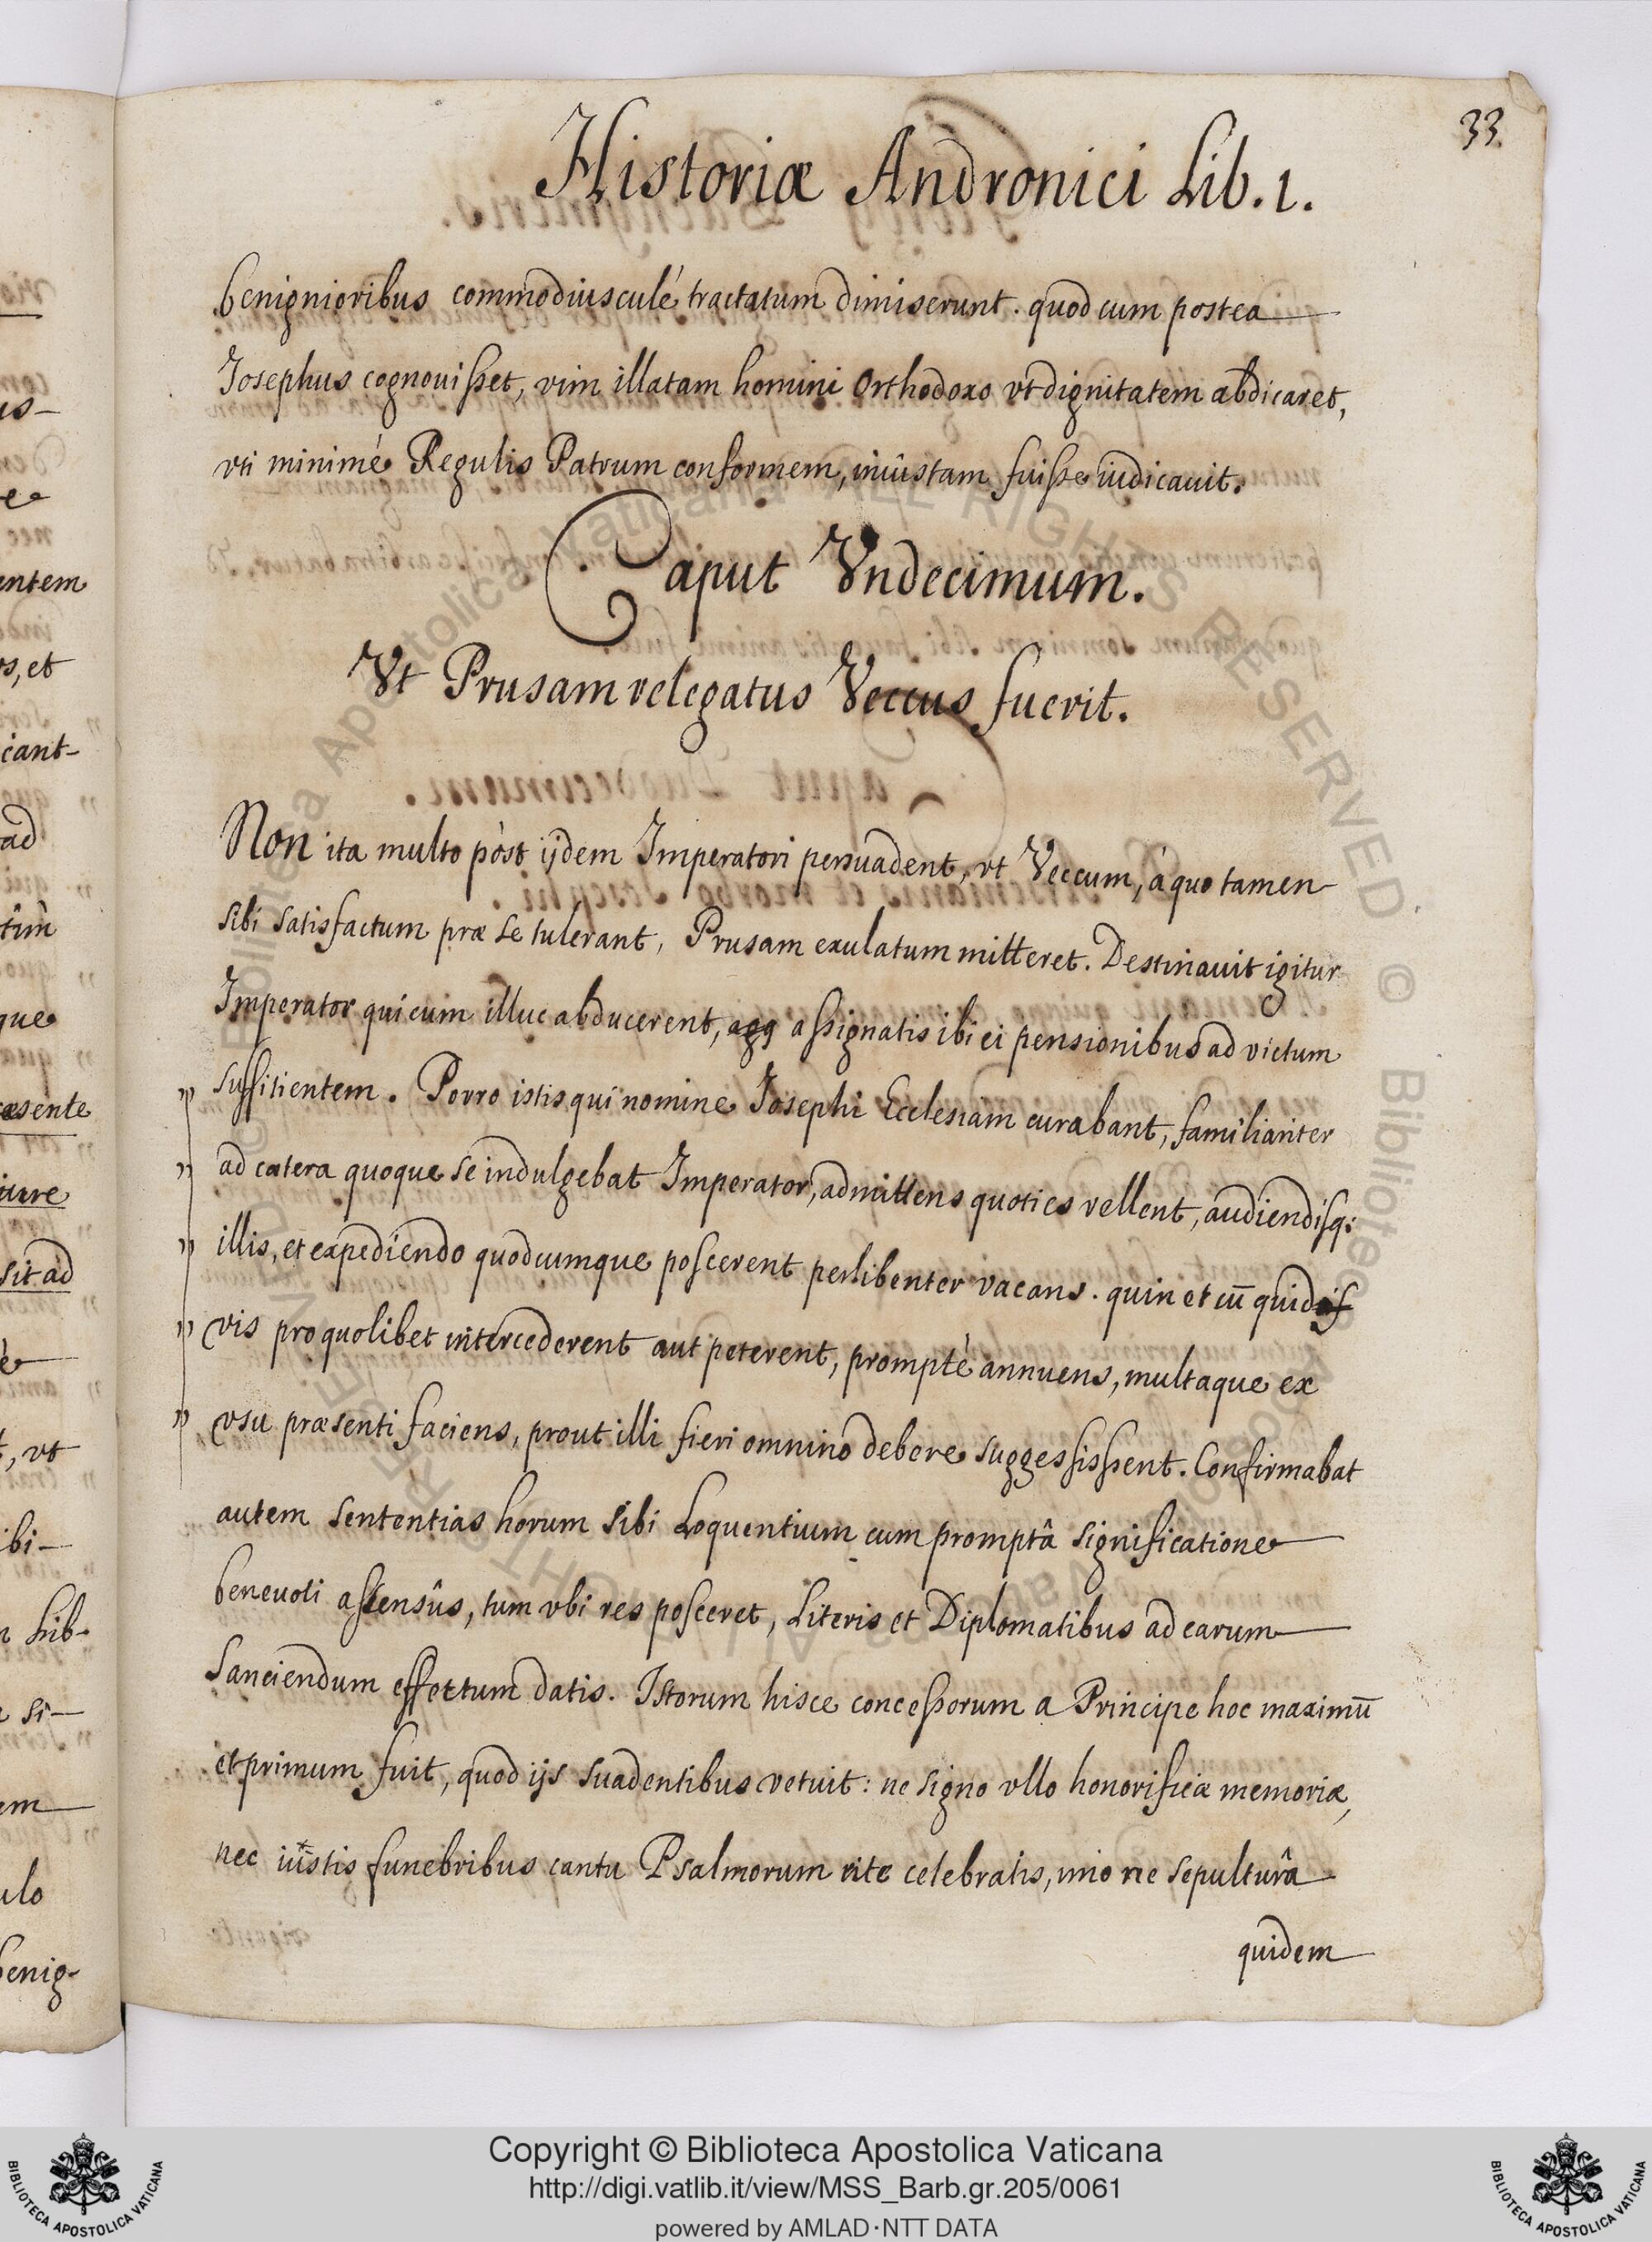 33.
Historiæ Andronici Lib. 1.
benignioribus commodiusculé tractatum dimiserunt. quod cum postea
Josephus cognouisset, vim illatam homini Orthodoxo vt dignitatem abdicaret,
vti minimé Regulis Patrum conformem, iniûstam fuisse iudicauit.
Caput Vndecimum.
Vt Prusam relegatus Veccus fuerit.
Non ita multo pòst ijdem Imperatori persuadent, vt Veccum, à quo tamen
sibi satisfactum præ se tulerant, Prusam exulatum mitteret. Destinauit igitur
Imperator qui eum illuc abducerent, assignatis ibi ei pensionibus ad victum
suffitientem. Porro istis qui nomine Josephi Ecclesiam curabant, familiariter
ad cætera quoque se indulgebat Imperator, admittens quoties vellent, audiendisq:
illis, et expediendo quodcumque poscerent perlibenter vacans. quin et cū quid
vis pro quolibet intercederent aut peterent, promptè annuens, multaque ex
vsu præsenti faciens, prout illi fieri omnino debere suggessissent. Confirmabat
autem sententias horum sibi Loquentium cum promptâ significatione
beneuoli assensûs, tum vbi res posceret, Literis et Diplomatibus ad earum
sanciendum effectum datis. Istorum hisce concessorum a Principe hoc maximū
et primum fuit, quod ijs suadentibus vetuit: ne signo vllo honorificæ memoriæ,
nec iustis funebribus cantu Psalmorum rite celebratis, imo ne sepulturâ
quidem
Copyright © Biblioteca Apostolica Vaticana
http://digi.vatlib.it/view/MSS_Barb.gr.205/0061
powered by AMLAD·NTT DATA
BIBLIOTECA APOSTOLICA VATICANA
BIBLIOTECA APOSTOLICA VATICANA